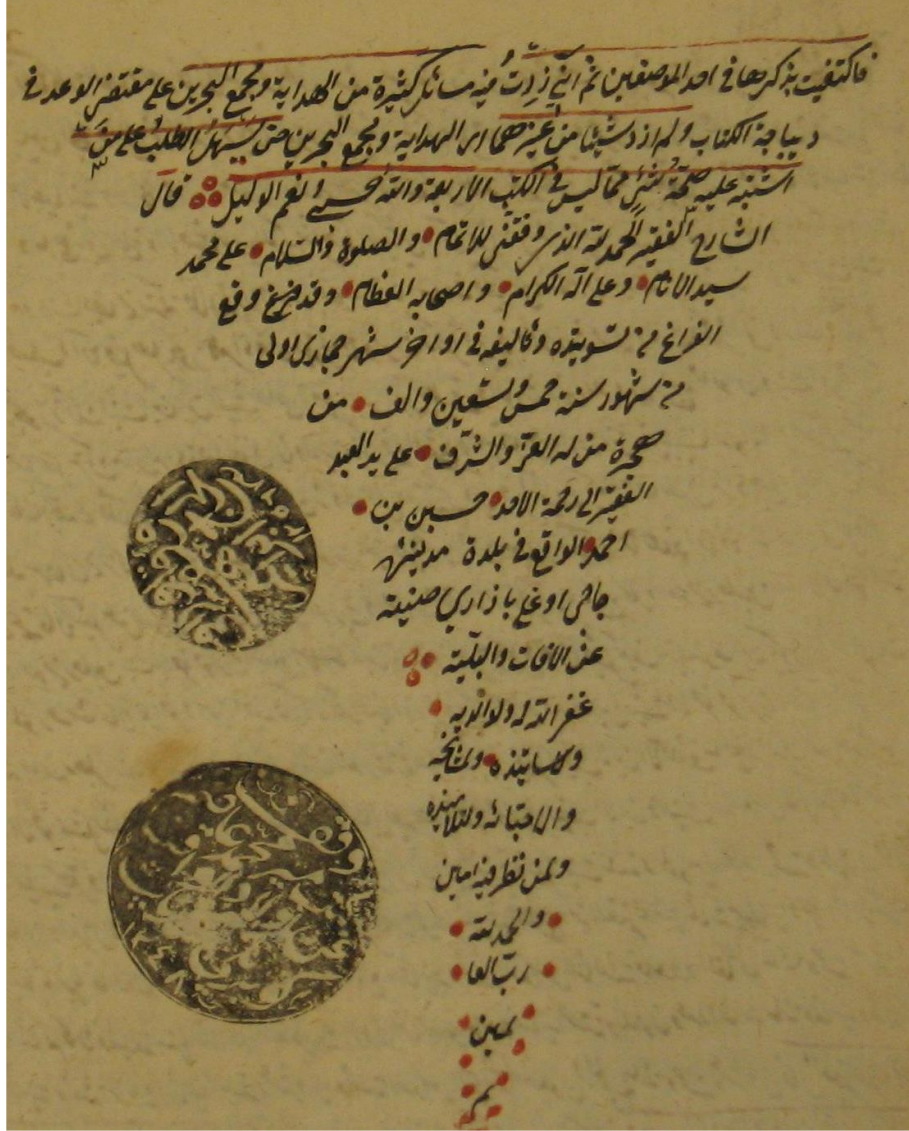 فاكتفيت بذكرها في احد الموضعين ثم اني زدت فيه مسائل كثيرة من الهداية ومجمع البحرين على مقتضى الوعد في
ديباجة الكتاب ولم ازد شيئا من غيرهما اى الهداية ومجمع البحرين حتى يسهل الطلب على من
اشتبه عليه صحة شئ مما ليس في الكتب الاربعة والله حسبي ونعم الوكيل قال
الشارح الفقير الحمد لله الذى وفقنى للاتمام والصلوة والسلام على محمد
سيد الانام وعلى آله الكرام واصحابه العظام وقد وقع
الفراغ من تسويده وتأليفه في اواخر شهر جمازى اولى
من شهور سنة خمس وتسعين والف من
هجرة من له العز والشرف على يد العبد
الفقير الى رحمة الاحد حسين بن
احمد الواقع في بلدة مدينتها
حاجى اوغلى بازارى صنيته
عن الافات والبلية
غفر الله له ولوالديه
ولاساتيذه ومشايخه
والاحبائه ولتلاميذه
ولمن نظر فيه امين
والحمد لله
رب العا
لمين
تم